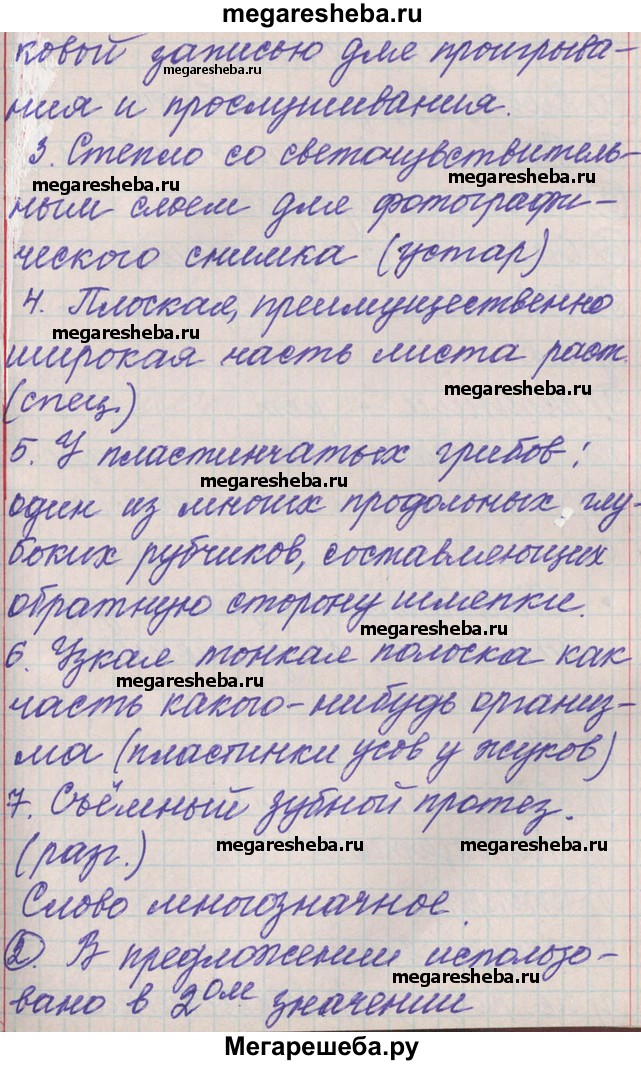 megaresheba.ru
ковой записью для проигрыва-
megaresheba.ru
ния и прослушивания.
3. Стекло со светочувствитель-
megaresheba.ru
megaresheba.ru
ным слоем для фотографи-
ческого снимка (устар)
4. Плоская, преимущественно
megaresheba.ru
широкая часть листа раст.
megaresheba.ru
(спец.)
5. У пластинчатых грибов:
megaresheba.ru
один из многих продольных глу-
боких рубчиков, составляющих
обратную сторону шляпки.
megaresheba.ru
6. Узкая тонкая полоска как
megaresheba.ru
часть какого-нибудь организ-
ма (пластинки усов у жуков)
7. Съёмный зубной протез.
(разг.)
megaresheba.ru
megaresheba.ru
Слово многозначное.
2. В предложении использо-
megaresheba.ru
вано в 2ом значении
Мегарешеба.ру